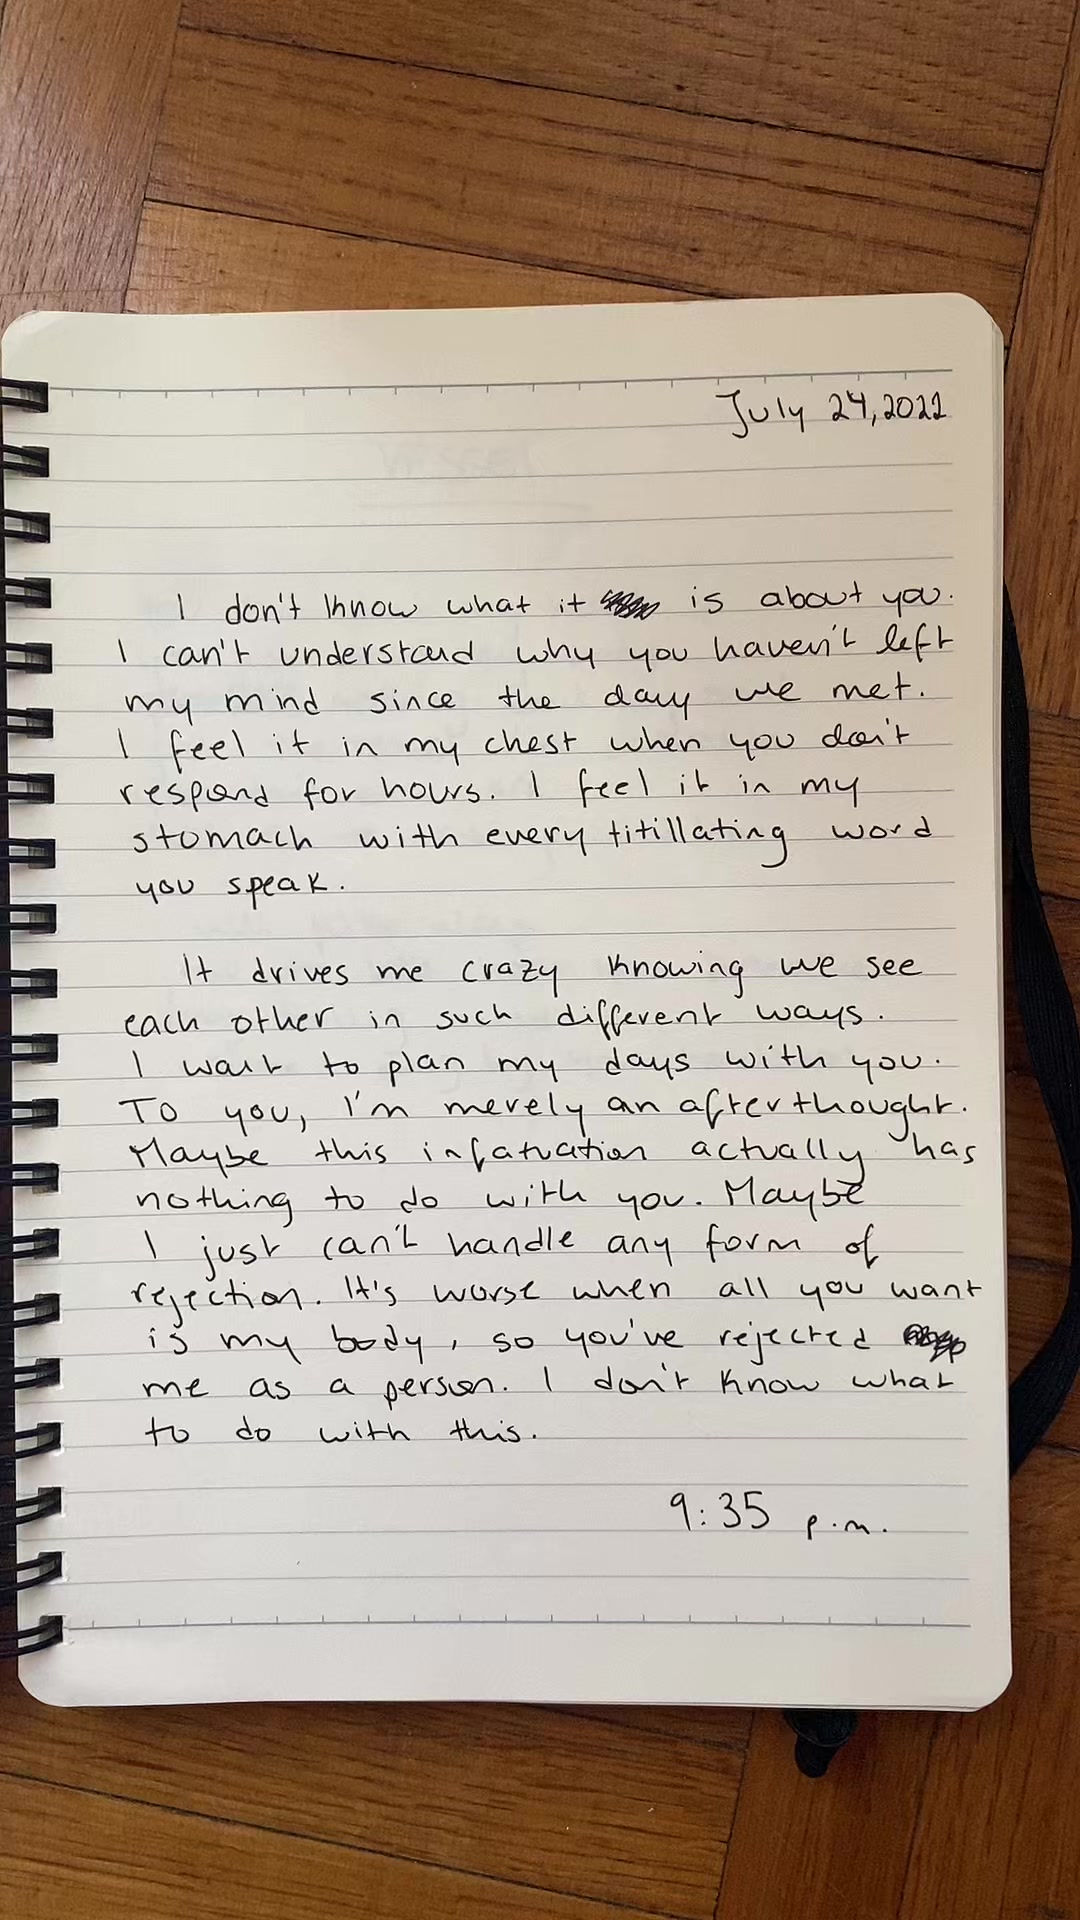 July 24, 2022
I don't know what it is about you.
I can't understand why you haven't left
my mind since the day we met.
I feel it in my chest when you don't
respond for hours. I feel it in my
stomach with every titillating word
you speak.
It drives me crazy knowing we see
each other in such different ways.
I want to plan my days with you.
To you, I'm merely an afterthought.
Maybe this infatuation actually has
nothing to do with you. Maybe
I just can't handle any form of
rejection. It's worse when all you want
is my body, so you've rejected
me as a person. I don't know what
to do with this.
9:35 p.m.